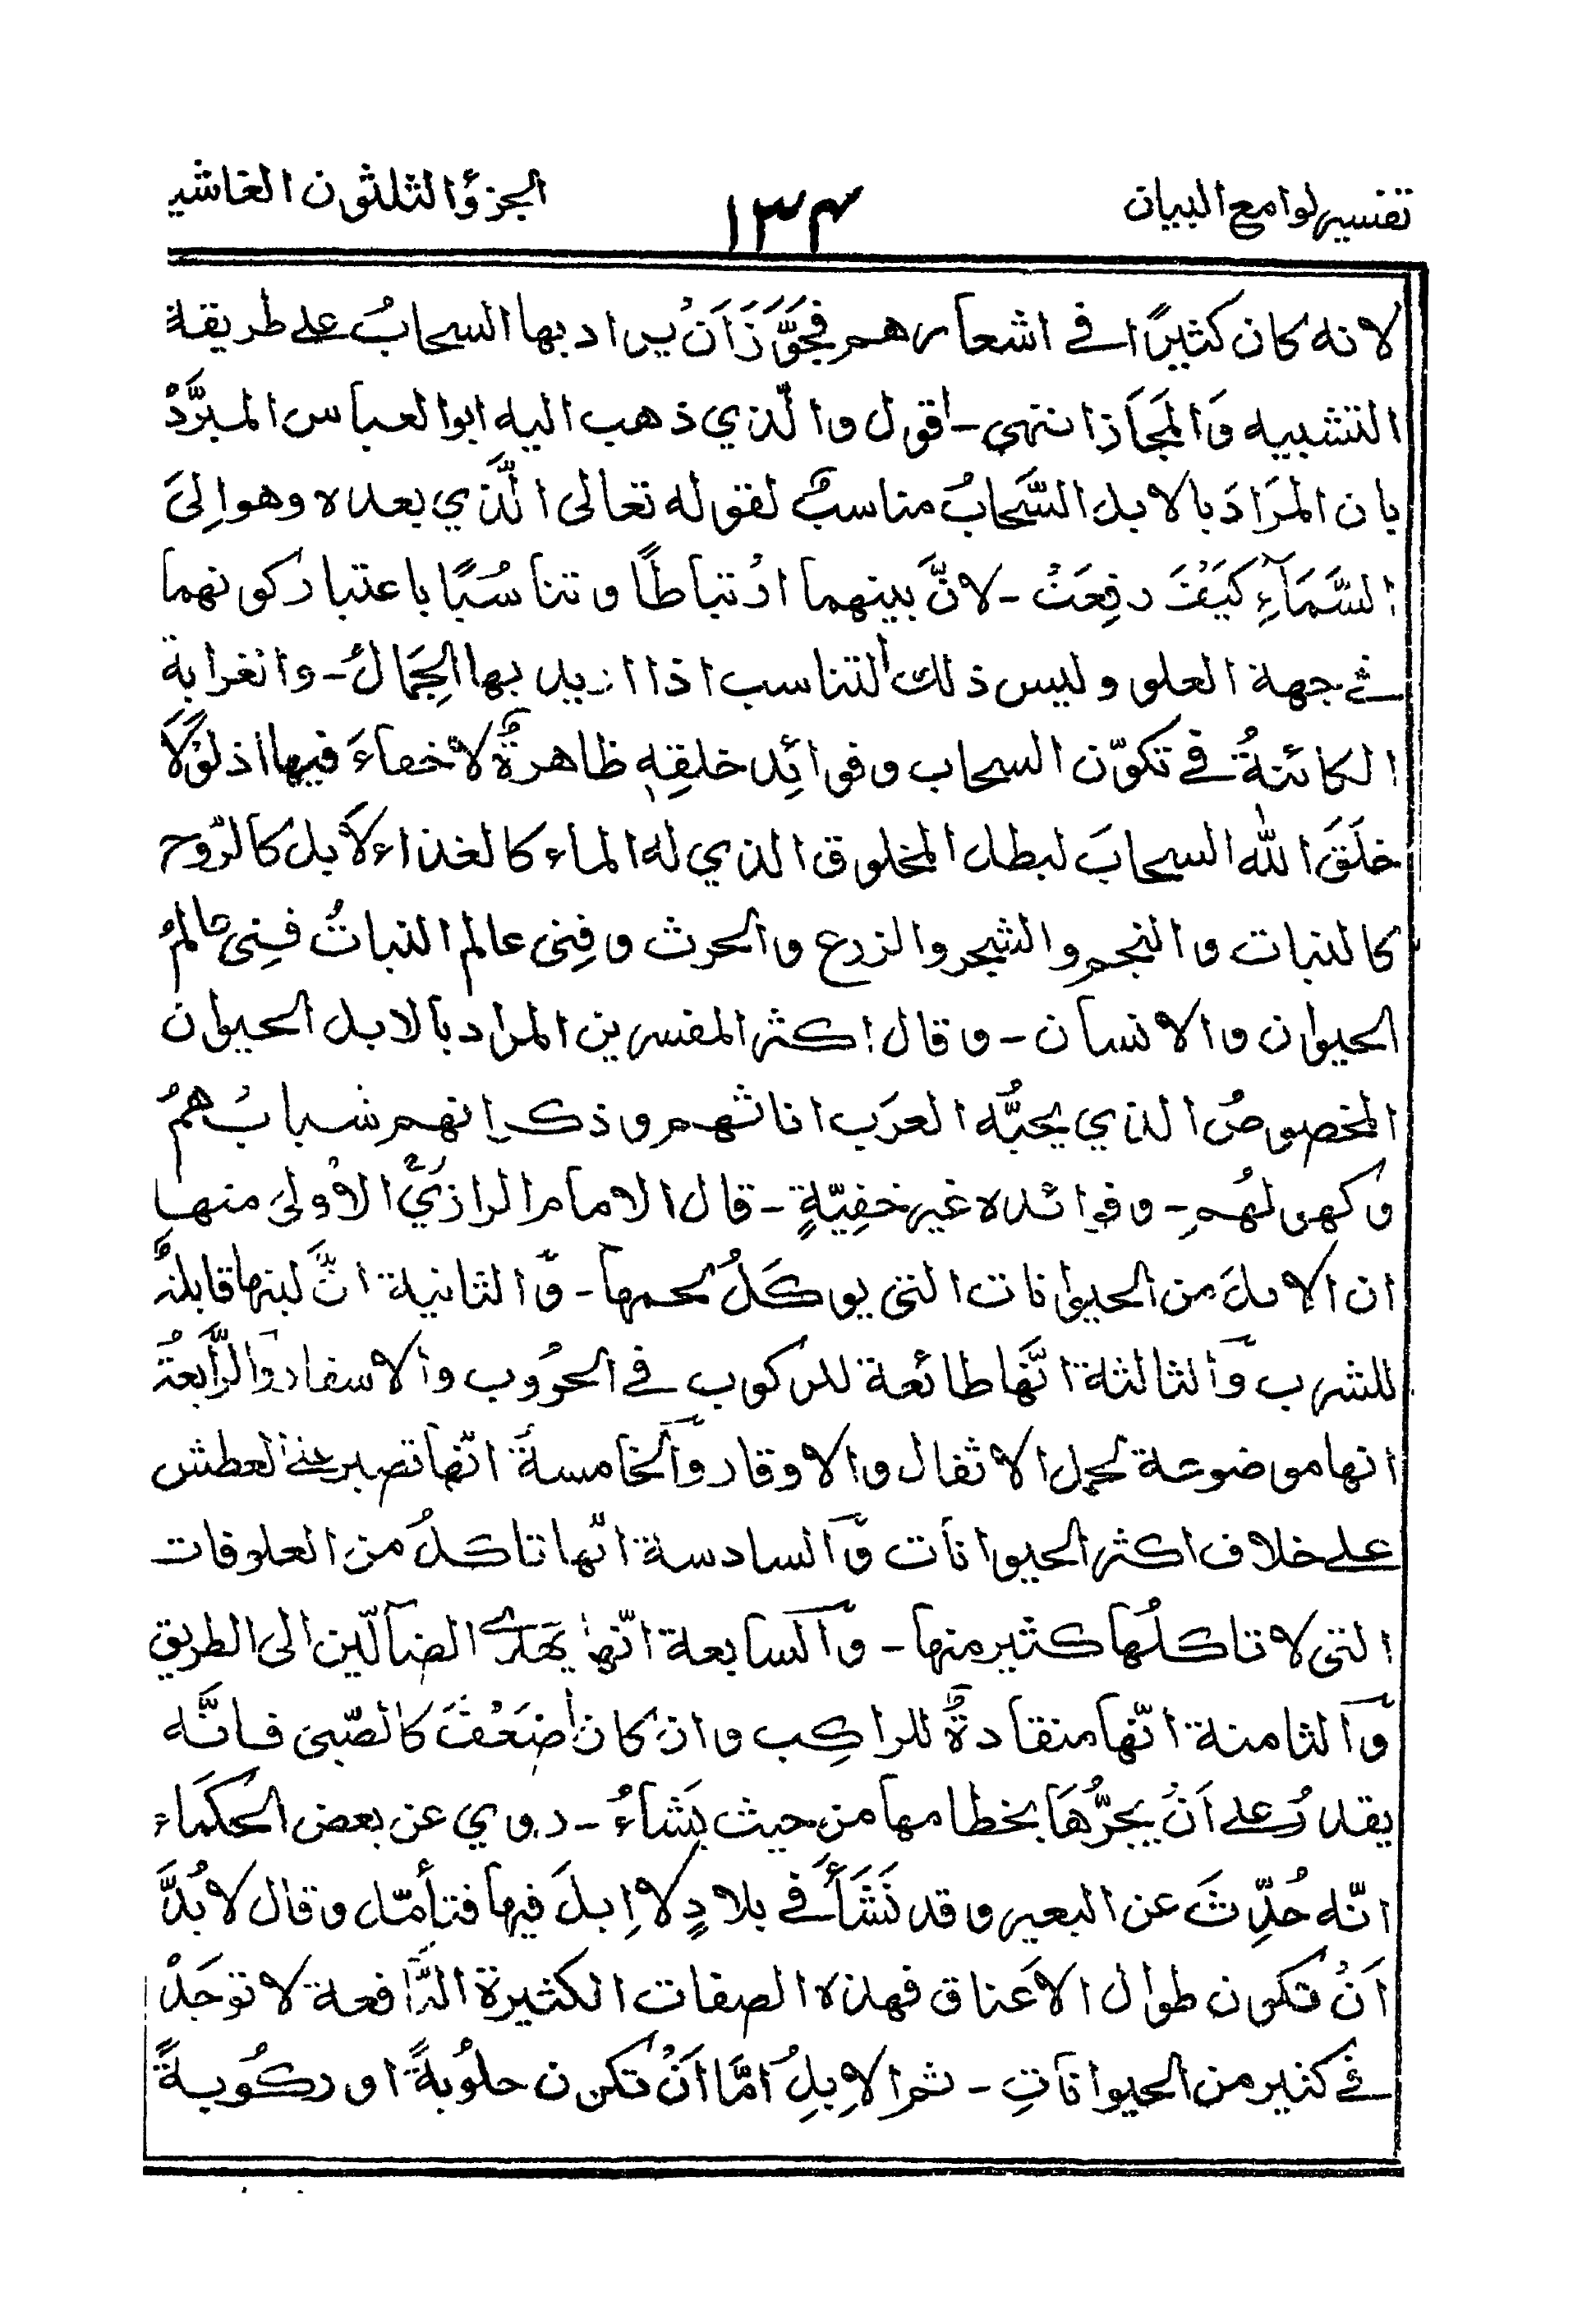 تفسير لوامع البيان ١٣٤ الجزؤ الثلثون الغاشية
لانه كان كثيرًا في اشعارهم فَجَوَّزَ اَنْ يراد بها السحابُ على طريقة
التشبيه وَالمَجَاز انتهى - اقول والّذي ذهب اليه ابوالعباس المبرَّدْ
بان المرَادَ بالابل السَّحابُ مناسبٌ لقوله تعالى الَّذي بعده وهو اِلىَ
السَّمَآءِ كَيْفَ رفِعَتْ - لانَّ بينهما ارْتباطًا وتناسُبًا باعتبار كونهما
في جهة العلو وليس ذلك التناسب اذا اريد بها الجِمَالُ - والغرابة
الكائنةُ في تكوّن السحاب وفوائِد خلقِهٖ ظاهرةٌ لاخفاءَ فيها اذ لوْلَا
خلَقَ اللّٰه السحابَ لبطل المخلوق الذي له الماء كالغذاء لَا بل كالرّوح
كالنبات والنجم والشجر والزرع والحرث وفِنى عالم النباتُ فنِى عالمُ
الحيوان والانسان - وقال اكثر المفسرين المراد بالابل الحيوان
المخصوصُ الذي يحبُّه العرَب اناثهم وذكرانهم شبابُهمْ
وكهولهُم - وفوائده غير خفِيّةٍ - قال الامام الرازيُّ الاوْلىَ منها
ان الابلَ من الحيوانات التي يوكَلُ لحمها - وَّالثانية انَّ لبنها قابلةٌ
للشرب وَّالثالثة انّها طائعة للركوب في الحرُوب والاسفار وَالرَّابعَةُ
انها موضوعة لحمل الاثقال والاوقار وَّالخامسةَ انّها تصبر على العطش
على خلاف اكثر الحيوانات وَّالسادسة انّها تاكلُ من العلوفات
التي لا تاكلُها كثير منها - وَّالسابعة انّها يهدى الضالّين الى الطريق
وَّالثامنة انّها منقادةٌ للراكِب وان كان اضْعَفَ كالصّبى فانَّه
يقدرُ على اَنْ يجرُّهَا بخطامها من حيث يَشَاءُ - روي عن بعض الحكَماء
انّه حُدِّثَ عن البعير وقد نَشَأَ في بلادٍ لا اِبلَ فيها فتأمّل وقال لابُدَّ
اَنْ تكون طوال الاَعناق فهذه الصفات الكثيرة النَّافعة لا توجَدْ
في كثير من الحيواناتِ - ثم الاِبلُ اَمَّا اَنْ تكون حلوُبةً او ركُوبةً